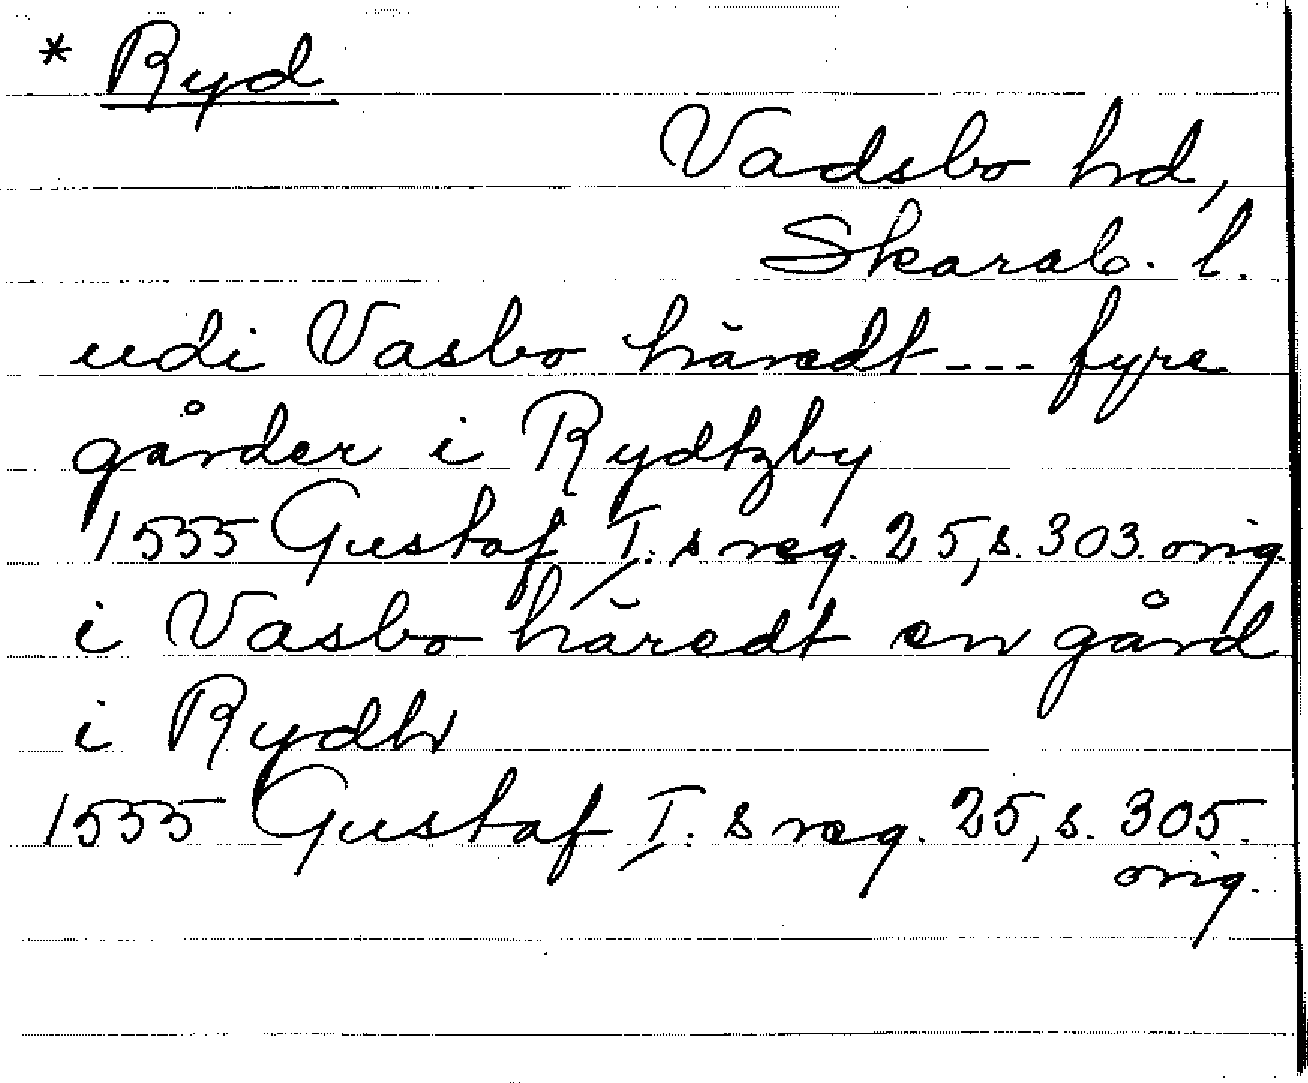 * Ryd
Vadsbo hd,
Skarab. l.
udi Vasbo häredt --- fyre
gårder i Rydtzby
1555 Gustaf I. s reg. 25, s. 303. orig.
i Vasbo häredt en gård
i Rydh
1555 Gustaf I. s reg. 25, s. 305.
orig.